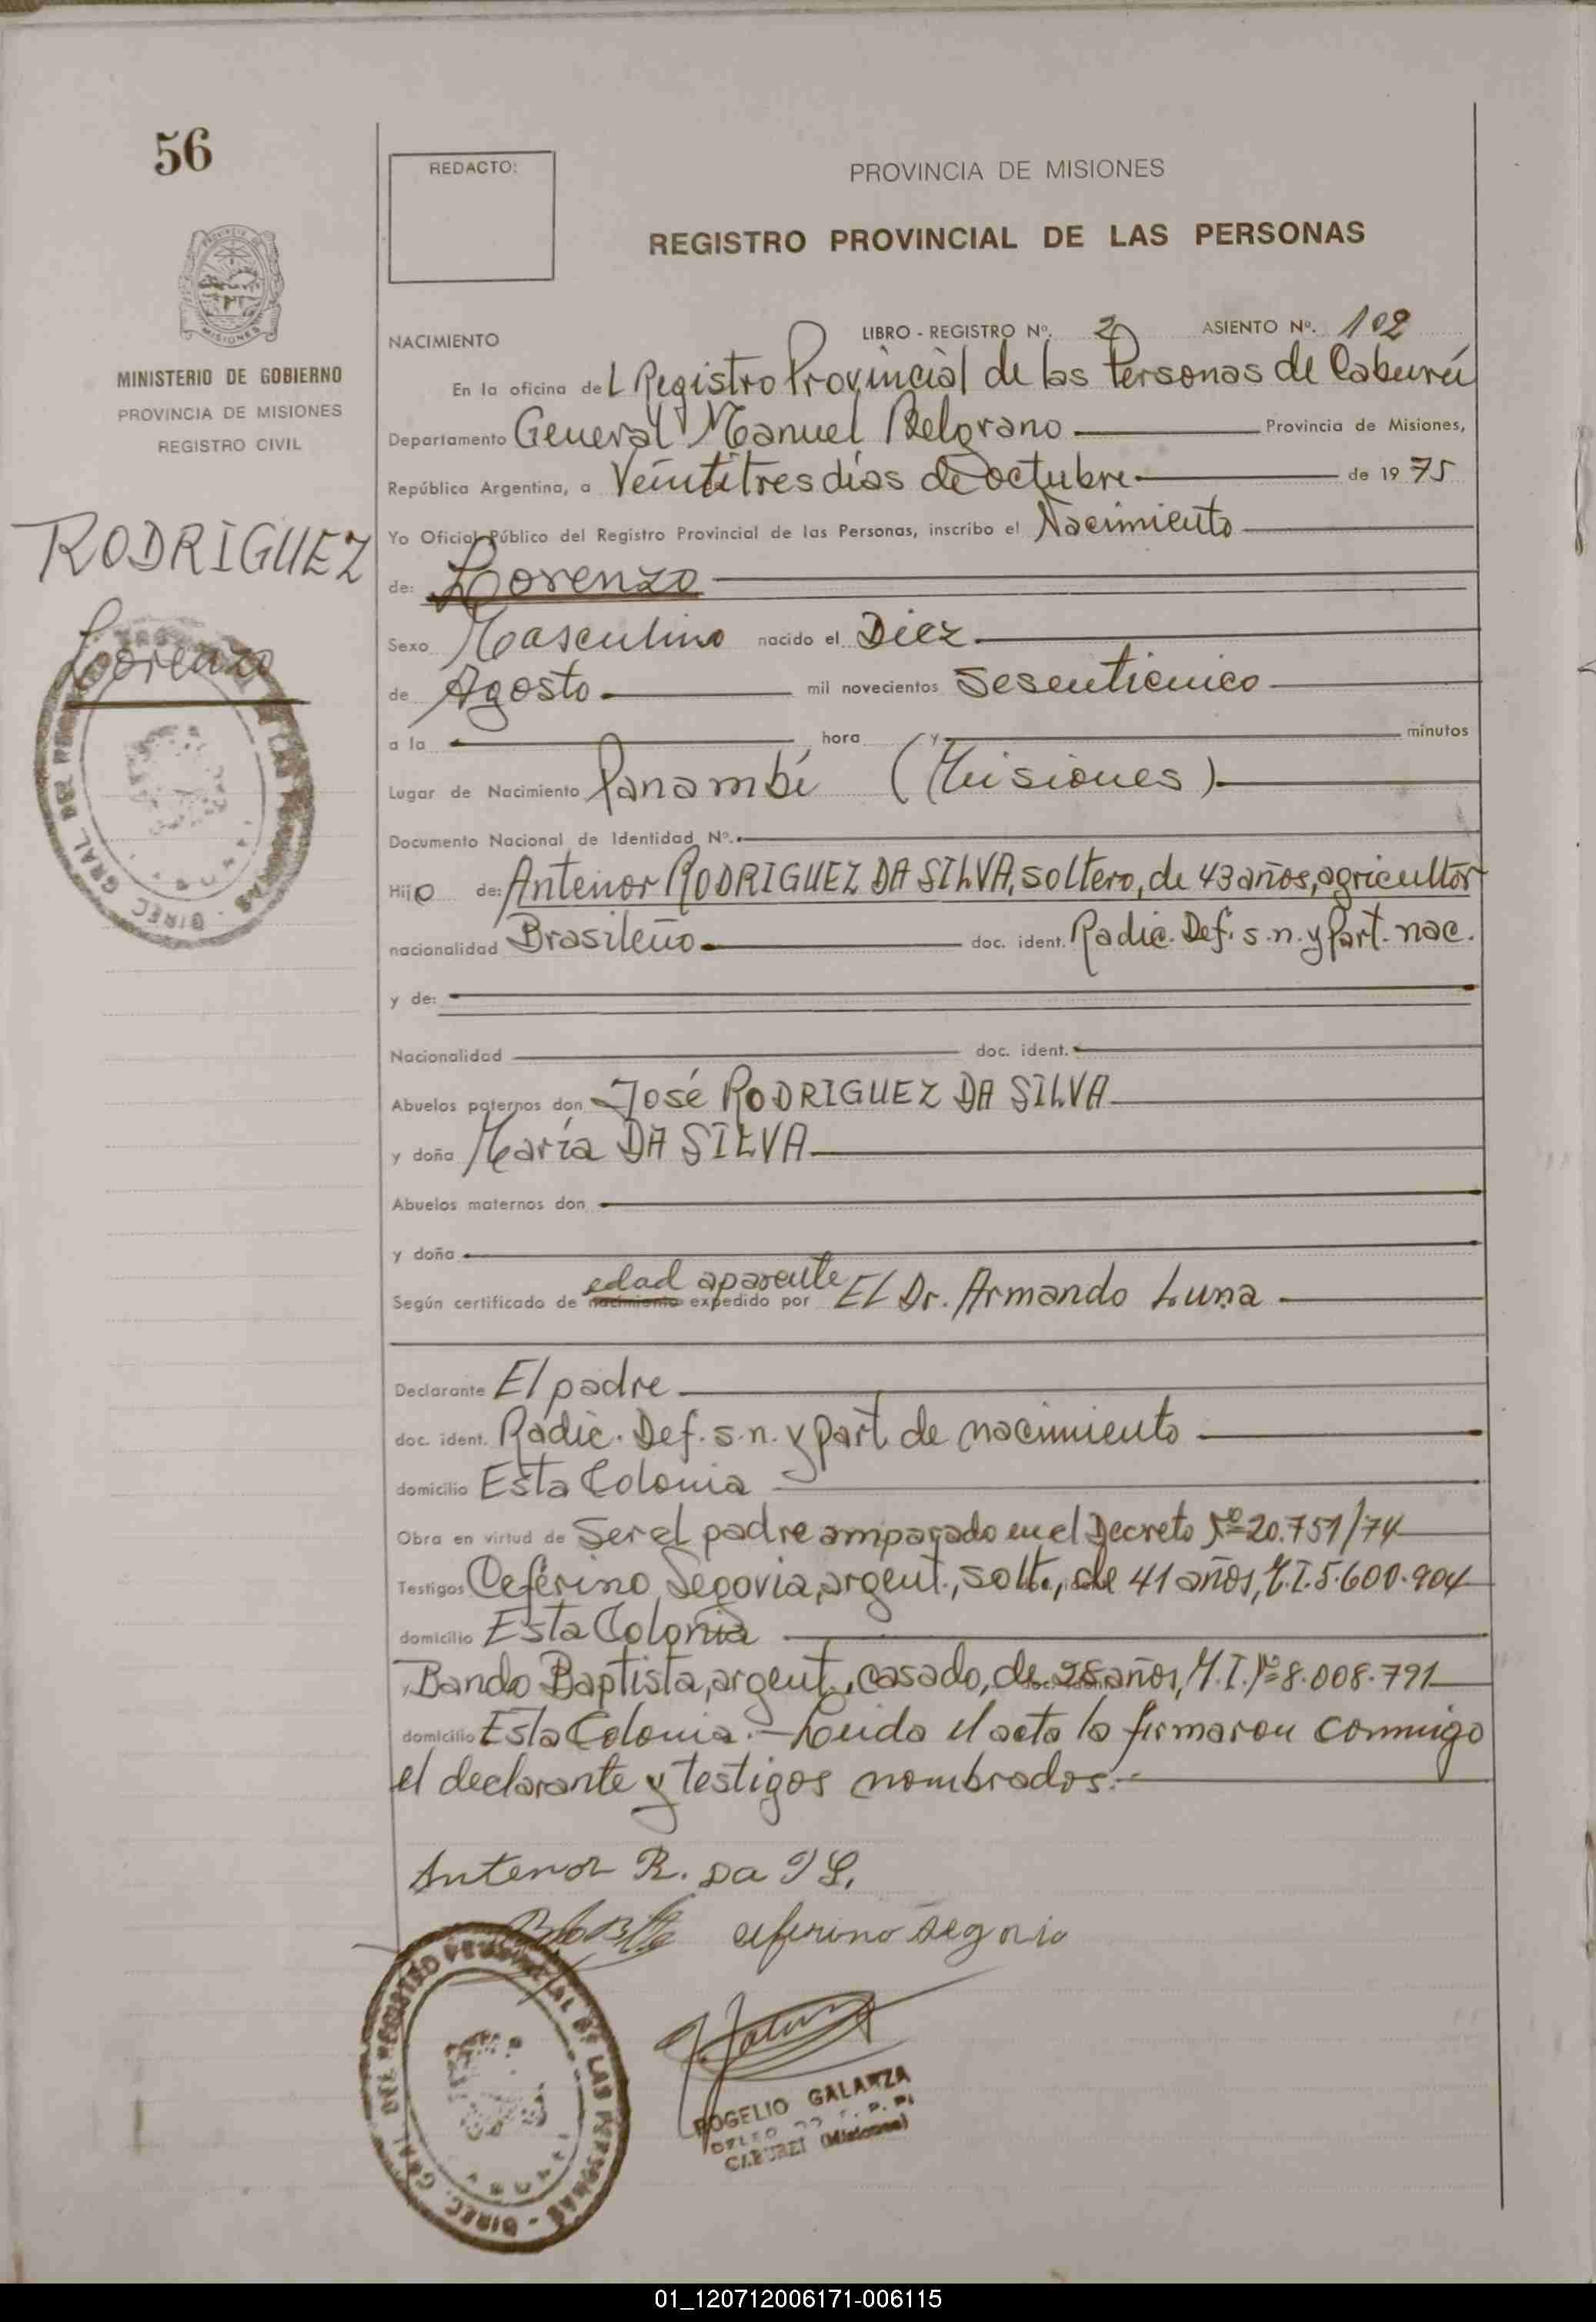 56
REDACTO:
PROVINCIA DE MISIONES
REGISTRO PROVINCIAL DE LAS PERSONAS
MISIONES
MINISTERIO DE GOBIERNO
PROVINCIA DE MISIONES
REGISTRO CIVIL
RODRIGUEZ
Lorenzo
NACIMIENTO LIBRO - REGISTRO Nº. 2 ASIENTO Nº. 102
En la oficina del Registro Provincial de las Personas de Caburéi
Departamento General Manuel Belgrano Provincia de Misiones,
República Argentina, a Veintitres dias de octubre de 1975
Yo Oficial Público del Registro Provincial de las Personas, inscribo el Nacimiento
de: Lorenzo
Sexo Masculino nacido el Diez
de Agosto mil novecientos Sesenticinico
a la hora y minutos
Lugar de Nacimiento Panambí (Misiones)
Documento Nacional de Identidad Nº.
Hijo de: Antenor RODRIGUEZ DA SILVA, soltero, de 43 años, agricultor
nacionalidad Brasileño doc. ident. Radic. Def. s.n. y Part. nac.
y de:
Nacionalidad doc. ident.
Abuelos paternos don José RODRIGUEZ DA SILVA
y doña María DA SILVA
Abuelos maternos don
y doña
edad aparente
Según certificado de nacimiento expedido por El Dr. Armando Luna
Declarante El padre
doc. ident. Radic. Def. s.n. y Part. de nacimiento
domicilio Esta Colonia
Obra en virtud de Ser el padre amparado en el Decreto Nº 20.751/74
Testigos Ceferino Segovia, argent., solt., de 41 años, M.I. 5.600.904
domicilio Esta Colonia
Bando Baptista, argent., casado, de 28 años, M.I. Nº 8.008.791
domicilio Esta Colonia.- Leida el acta la firmaron conmigo
el declarante y testigos nombrados.-
Antenor R. Da S.
ceferino segovia
DIREC. GRAL. DEL REGISTRO PROVINCIAL DE LAS PERSONAS
ROGELIO GALARZA
CABUREI (Misiones)
01_120712006171-006115